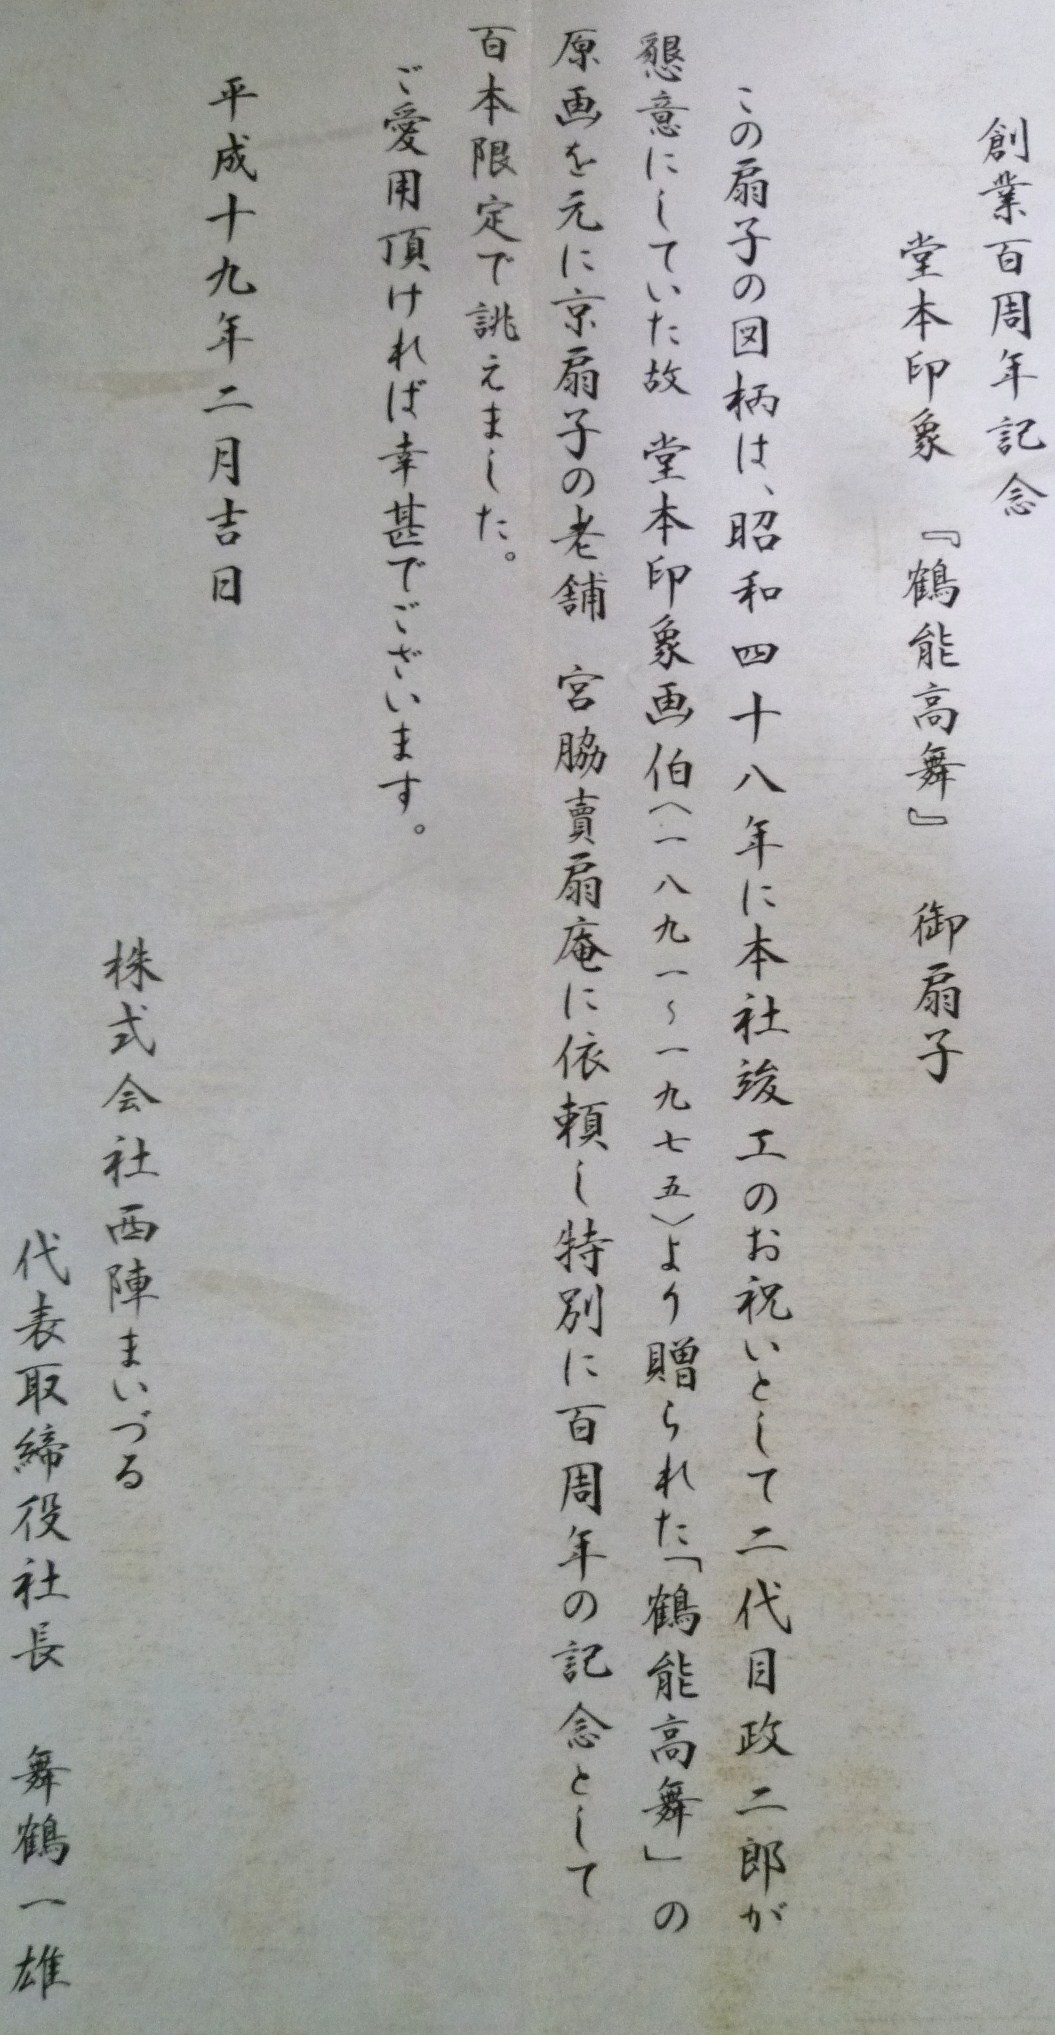 創業百周年記念
堂本印象 『鶴能高舞』 御扇子
この扇子の図柄は、昭和四十八年に本社竣工のお祝いとして二代目政二郎が
懇意にしていた故 堂本印象画伯(一八九一~一九七五)より贈られた「鶴能高舞」の
原画を元に京扇子の老舗 宮脇賣扇庵に依頼し特別に百周年の記念として
百本限定で誂えました。
ご愛用頂ければ幸甚でございます。
平成十九年二月吉日
株式会社西陣まいづる
代表取締役社長 舞鶴一雄